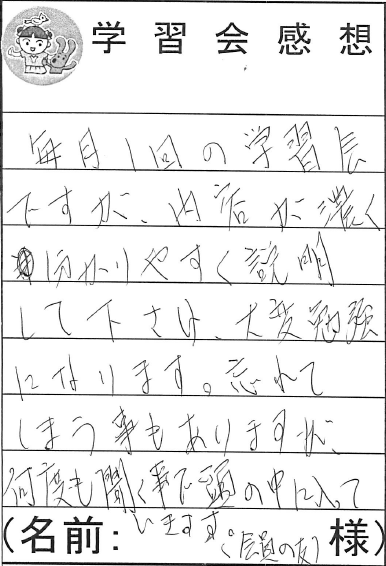 学習会感想
毎月1回の学習会
ですが、内容が濃く
分かりやすく説明
して下さり、大変勉強
になります。忘れて
しまう事もありますが、
何度も聞く事で頭の中に入って
いきます。(会員の友)
(名前: 様)